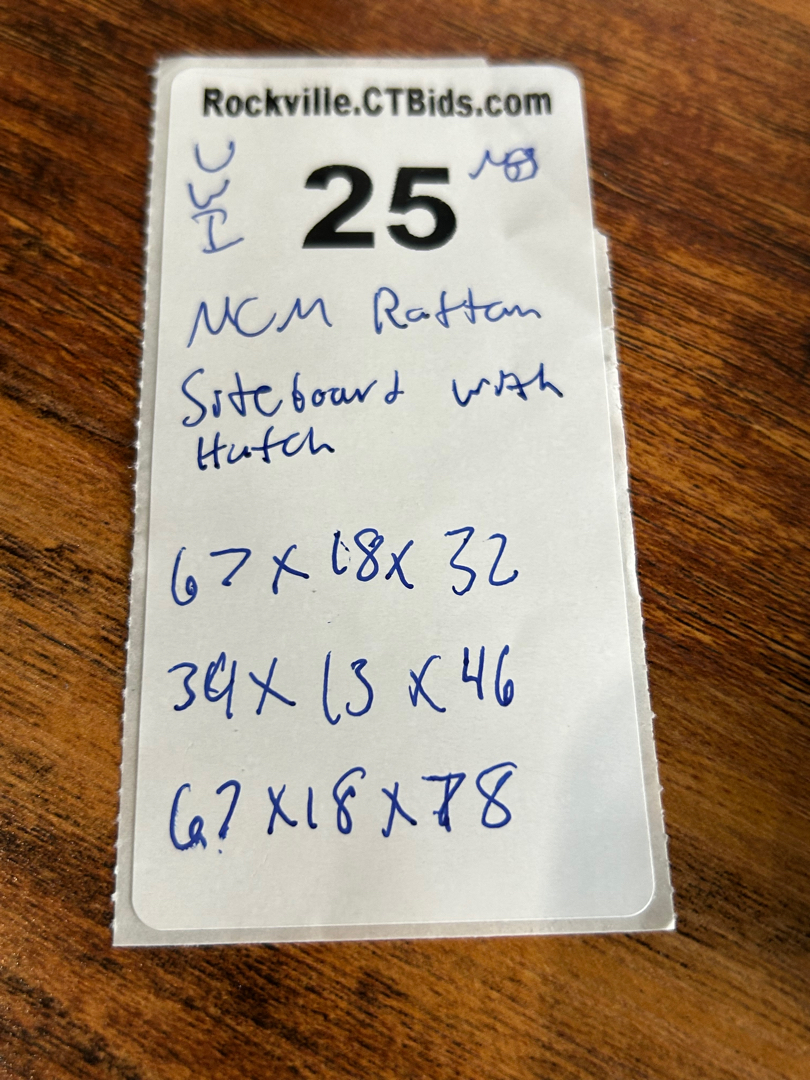 Rockville.CTBids.com
U
W
I
25
MCM Rattan
Siteboard with
Hutch
67 x 18 x 32
39 x 13 x 46
67 x 18 x 78